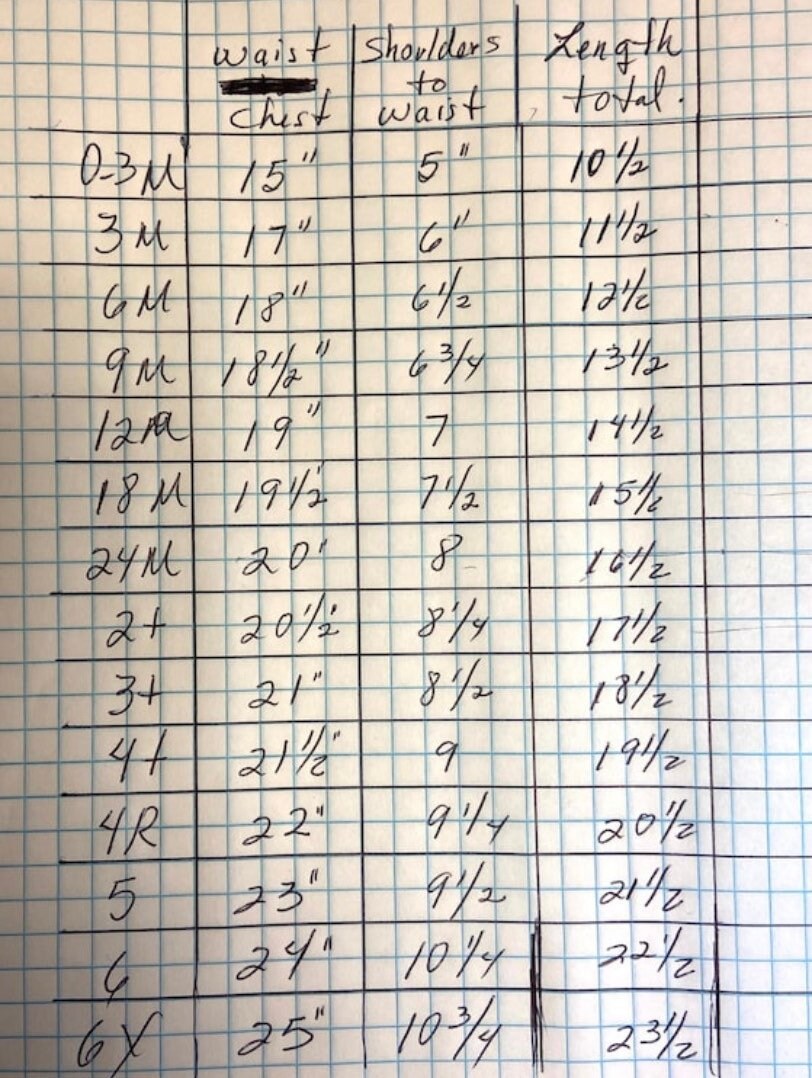 waist Shoulders Length
to total.
chest waist
0-3M 15" 5" 10 1/2
3M 17" 6" 11 1/2
6M 18" 6 1/2 12 1/2
9M 18 1/2" 6 3/4 13 1/2
12M 19" 7 14 1/2
18M 19 1/2 7 1/2 15 1/2
24M 20' 8 16 1/2
2t 20 1/2 8 1/4 17 1/2
3t 21" 8 1/2 18 1/2
4t 21 1/2" 9 19 1/2
4R 22" 9 1/4 20 1/2
5 23" 9 1/2 21 1/2
6 24" 10 1/4 22 1/2
6X 25" 10 3/4 23 1/2